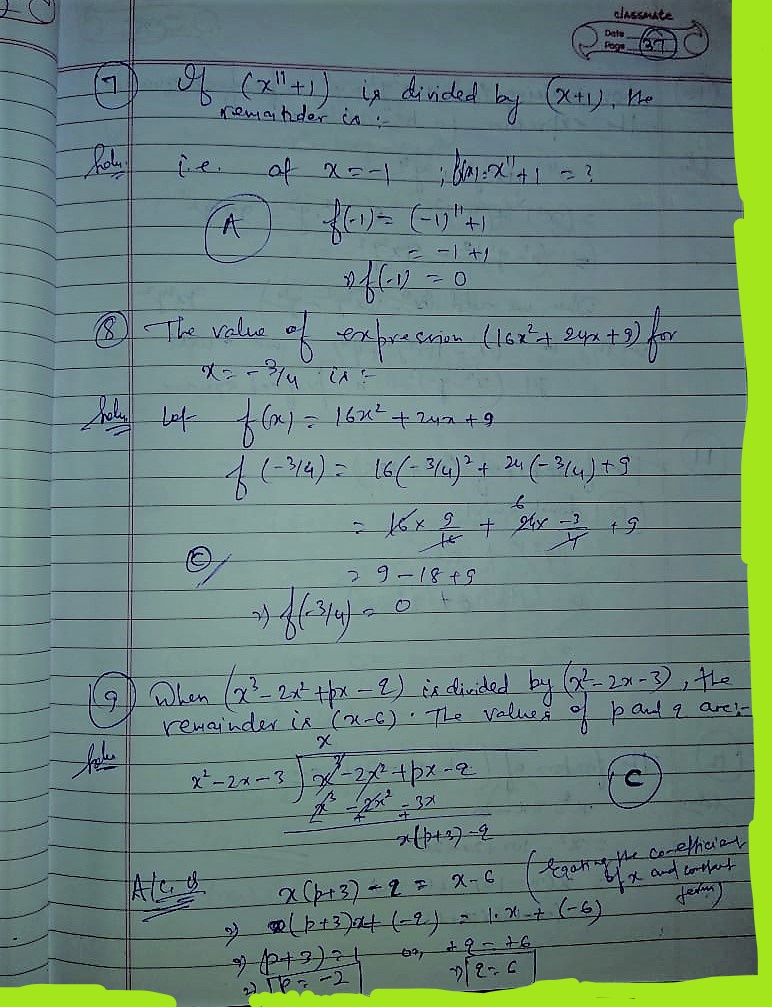 classmate
Date
Page 37
7 If (x¹¹+1) is divided by (x+1), the
remainder is :-
Soln. i.e. at x = -1 ; f(x) = x¹¹+1 = ?
A f(-1) = (-1)¹¹+1
= -1+1
⇒ f(-1) = 0
8 The value of expression (16x²+24x+9) for
x = -3/4 is :-
Soln. Let f(x) = 16x²+24x+9
f(-3/4) = 16(-3/4)² + 24(-3/4)+9
6
= 16 × 9/16 + 24 × -3/4 + 9
C = 9-18+9
⇒ f(-3/4) = 0
9 When (x³-2x²+px-q) is divided by (x²-2x-3), the
remainder is (x-6). The values of p and q are:-
Soln x
x²-2x-3 ) x³-2x²+px-q C
x³-2x²-3x
- + +
x(p+3)-q
A/c, Q x(p+3)-q = x-6 (Equating the co-efficient
of x and constant
term)
⇒ (p+3)x+(-q) = 1.x+(-6)
⇒ (p+3)=1 or, +q = +6
⇒ p = -2 ⇒ q = 6